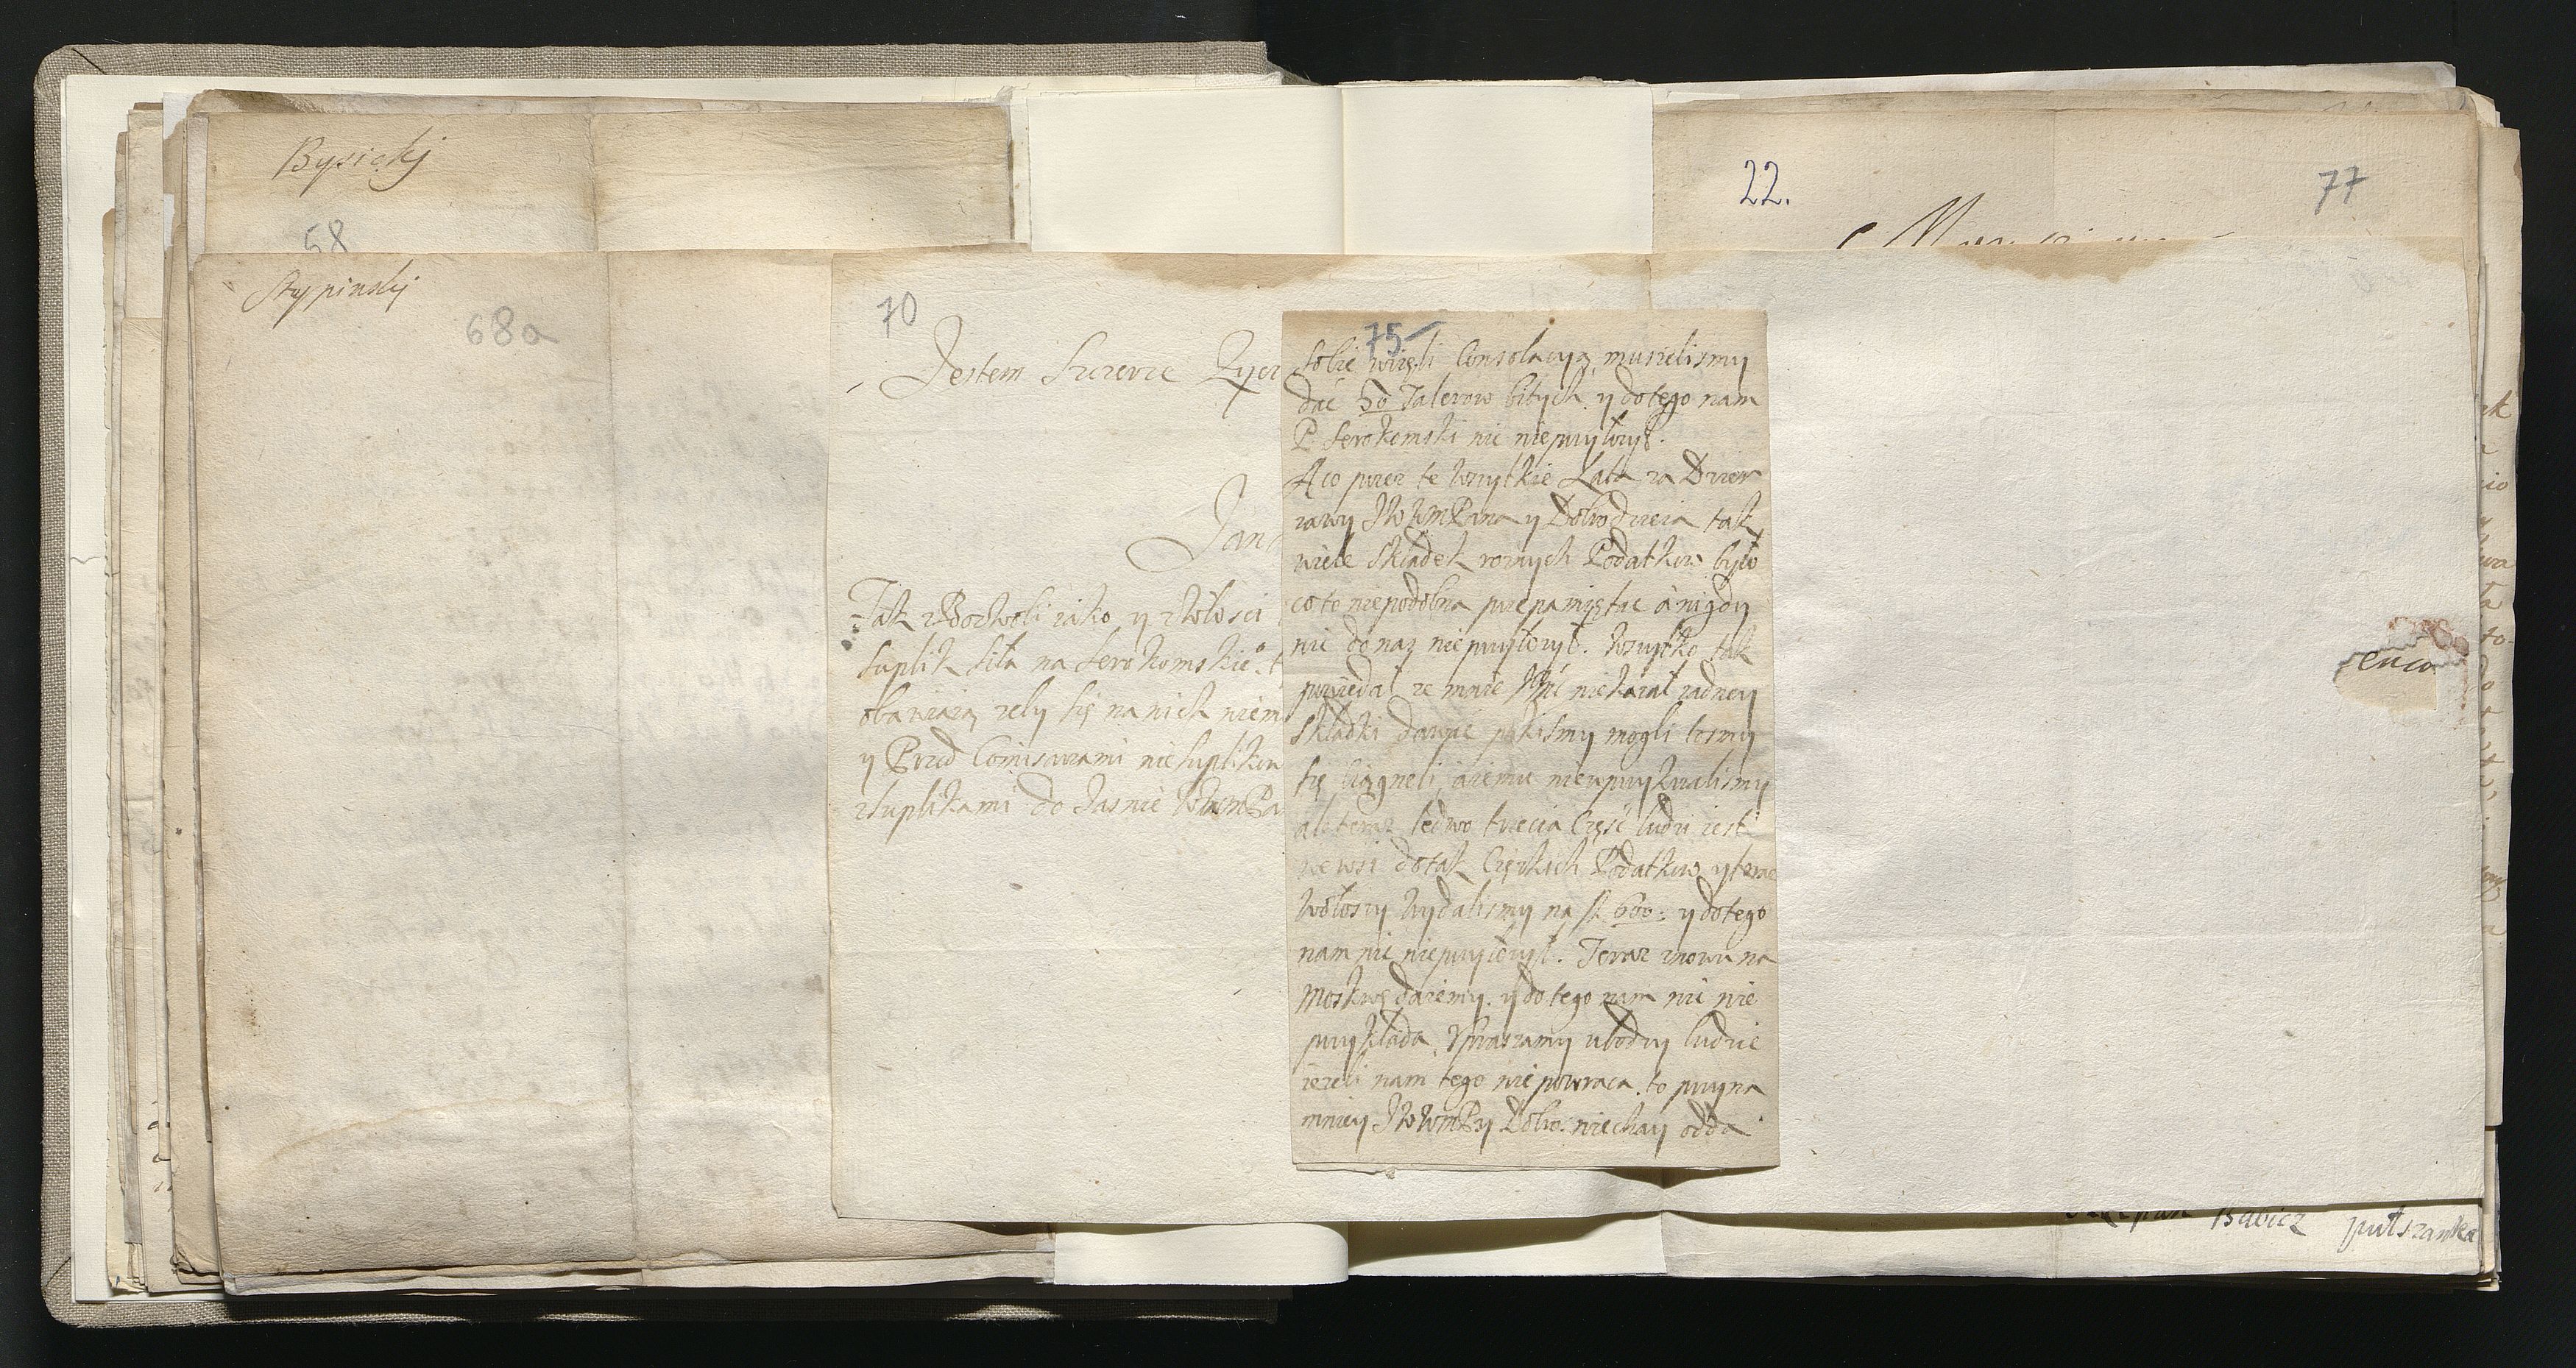 Bysickj
58
Stypinskj
68a
70
Jestem Szczerze Zycz
Jan
Tak z Borkwoli iako y z Wołosci
suplik siła na Serokomskie°
obawiaią zeby się na nich niem
y Przed Comisarzami nie suplikow
z suplikami do Jasnie WWmPa
75
sobie wzięli Consolacyą, musielismy
dać 50 Talerow bitych y do tego nam
P. Serokomski nic nieprzyłozył.
A co przez te wszytkie Lata za Dzier
zawy JWWmPana y Dobrodzieia tak
wiele Składek roznych Podatkow było
co to niepodobna przepamiętac a nigdy
nic do nas nieprzyłozył. Wszytko tak
powiedał ze mnie JMć nie kazał zadney
Składki dawac pokismy mogli tosmy
się ciągneli, a iemu nieuprzykrzalismy
ale teraz ledwo trzecia Częsc ludzi iest
we wsi do tak Cięzkich Podatkow y teraz
Wołoszy wydalismy na fl 600: y do tego
nam nic nieprzyłozył. Teraz znowu na
Moskwę daiemy. y do tego nam nic nie
przykłada. Upraszamy ubodzy ludzie
iezeli nam tego niepowraca. to przyna
mniey JWWmPy Dobro: niechay odda
22.
77
enco
Babicz pułszanka